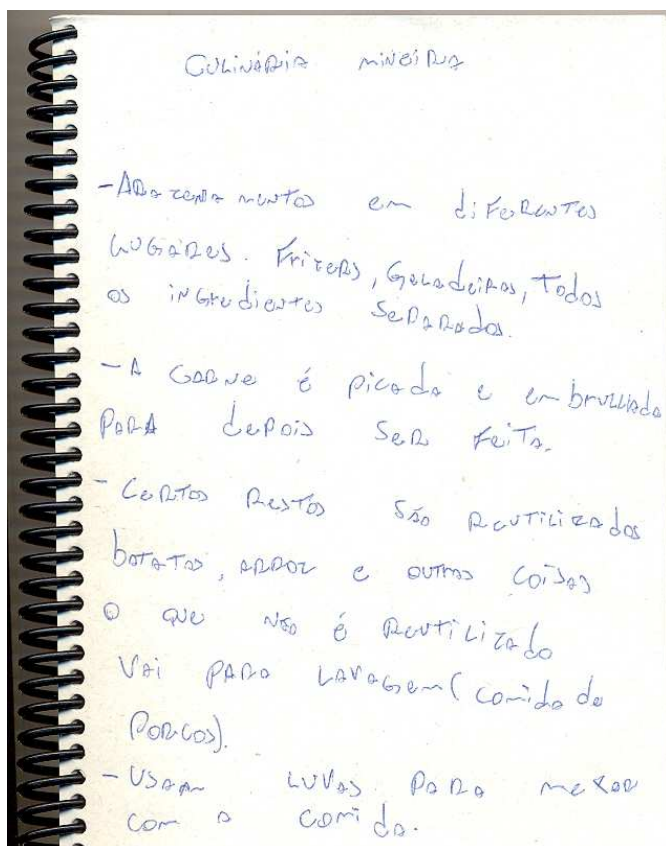 Culinária mineira
- Arazenamentos em diferentes
lugares. Frizers, Geladeiras, todos
os ingredientes separados.
- A carne é picada e embrulhada
para depois ser feita.
- Certos restos são reutilizados
batatas, arroz e outras coisas
o que não é reutilizado
vai para lavagem (comida de
porcos).
- Usam luvas para mexer
com a comida.